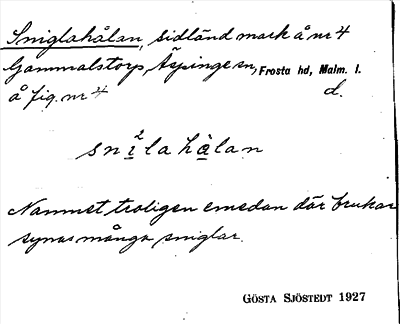 Sniglahålan, sidländ mark å nr 4
Gammalstorp, Äspinge sn, Frosta hd, Malm. l.
å fig. nr 4 d.
sni²lahålan
Namnet troligen emedan där brukar
synas många sniglar.
GÖSTA SJÖSTEDT 1927